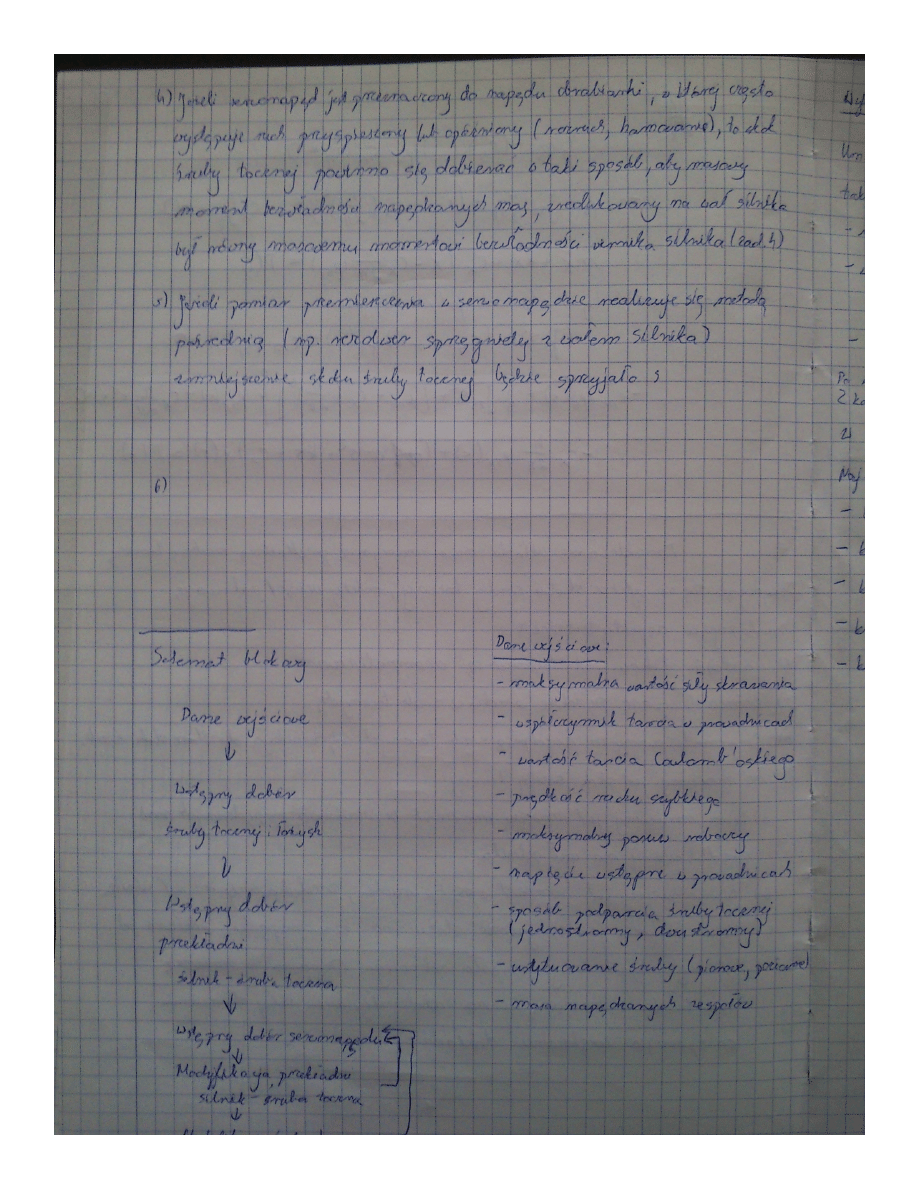 4) Jeżeli serwonapęd jest przeznaczony do napędu obrabiarki, w której często
występuje ruch przyspieszony lub opóźniony (rozruch, hamowanie), to skok
śruby tocznej powinno się dobierać w taki sposób, aby masowy
moment bezwładności napędzanych mas, zredukowany na wał silnika
był równy masowemu momentowi bezwładności wirnika silnika (zad. 4)
5) Jeżeli pomiar przemieszczenia w serwonapędzie realizuje się metodą
pośrednią (np. rezolwer sprzęgnięty z wałem silnika)
zmniejszenie skoku śruby tocznej będzie sprzyjało s
6)
Schemat blokowy
Dane wejściowe
↓
Wstępny dobór
śruby tocznej i łożysk
↓
Wstępny dobór
przekładni
silnik - śruba toczna
↓
Wstępny dobór serwonapędu
↓
Modyfikacja przekładni
silnik - śruba toczna
↓
Dane wejściowe:
- maksymalna wartość siły skrawania
- współczynnik tarcia w prowadnicach
- wartość tarcia Coulomb'owskiego
- prędkość ruchu szybkiego
- maksymalny posuw roboczy
- napięcie wstępne w prowadnicach
- sposób podparcia śruby tocznej
(jednostronny, dwustronny)
- usytuowanie śruby (pionowe, poziome)
- masa napędzanych zespołów